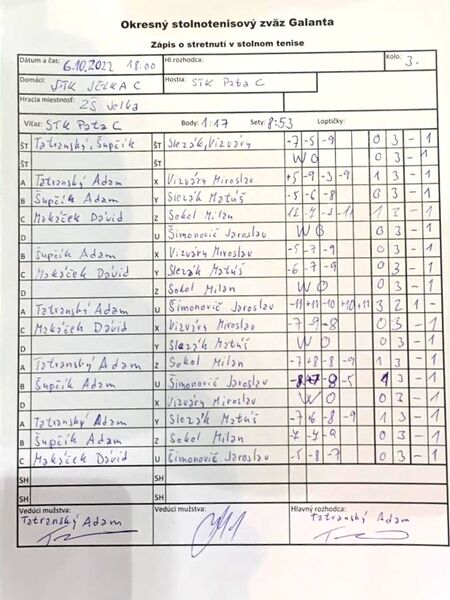 Okresný stolnotenisový zväz Galanta
Zápis o stretnutí v stolnom tenise
Dátum a čas: 6.10.2022 18:00 Hl.rozhodca: Kolo: 3.
Domáci: STK JELKA C Hostia: STK Pata C
Hracia miestnosť: ZŠ Jelka
Víťaz: STK Pata C Body: 1:17 Sety: 8:53 Loptičky:
ŠT Tatranský, Šupčík ŠT Slezák, Vizváry -7 -5 -9 0 3 - 1
ŠT ŠT WO 0 3 - 1
A Tatranský Adam X Vizváry Miroslav +5 -9 -3 -9 1 3 - 1
B Šupčík Adam Y Slezák Matúš -5 -6 -8 0 3 - 1
C Makáček Dávid Z Sokol Milan 1 3 - 1
D U Šimonovič Jaroslav WO 0 3 - 1
B Šupčík Adam X Vizváry Miroslav -5 -7 -9 0 3 - 1
C Makáček Dávid Y Slezák Matúš -6 -7 -9 0 3 - 1
D Z Sokol Milan WO 0 3 - 1
A Tatranský Adam U Šimonovič Jaroslav -11 +11 -10 +10 +11 3 2 1 -
C Makáček Dávid X Vizváry Miroslav -7 -9 -8 0 3 - 1
D Y Slezák Matúš WO 0 3 - 1
A Tatranský Adam Z Sokol Milan -7 +8 -8 -9 1 3 - 1
B Šupčík Adam U Šimonovič Jaroslav -8 +7 -8 -5 1 3 - 1
D X Vizváry Miroslav WO 0 3 - 1
A Tatranský Adam Y Slezák Matúš -7 +6 -8 -9 1 3 - 1
B Šupčík Adam Z Sokol Milan -7 -7 -9 0 3 - 1
C Makáček Dávid U Šimonovič Jaroslav -5 -8 -7 0 3 - 1
SH SH
SH SH
Vedúci mužstva: Vedúci mužstva: Hlavný rozhodca:
Tatranský Adam Tatranský Adam